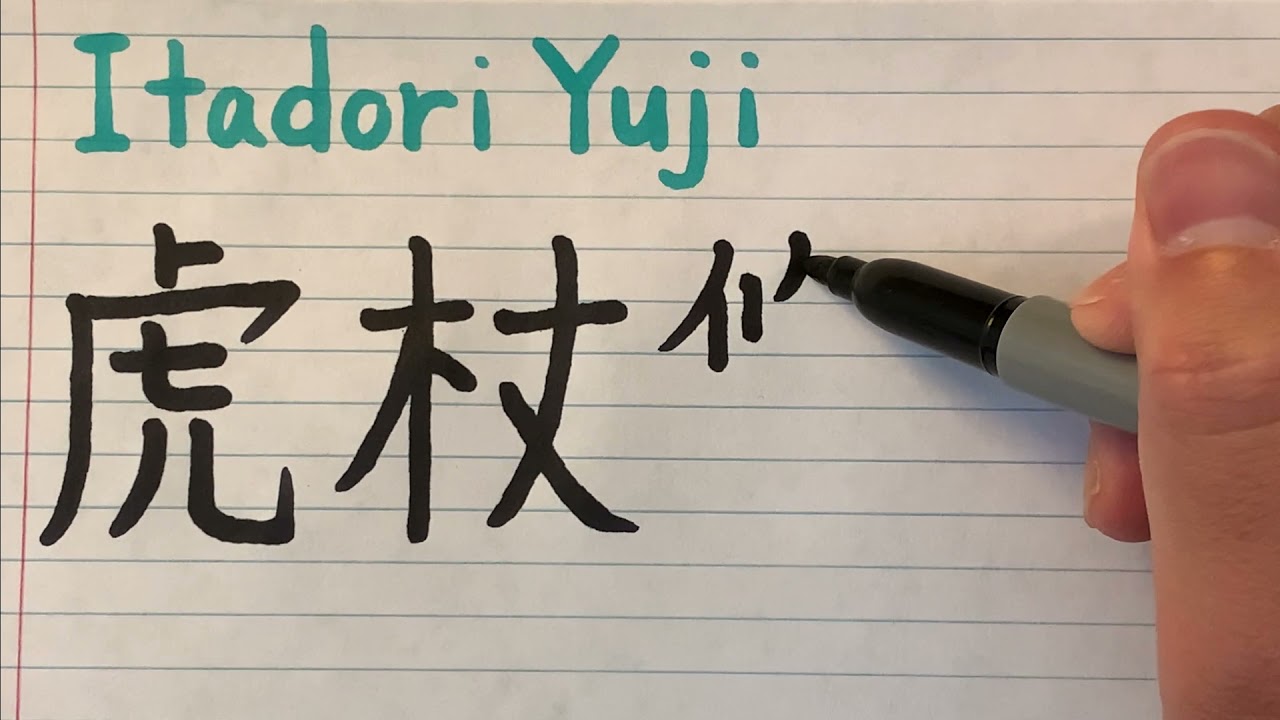 Itadori Yuji
虎杖